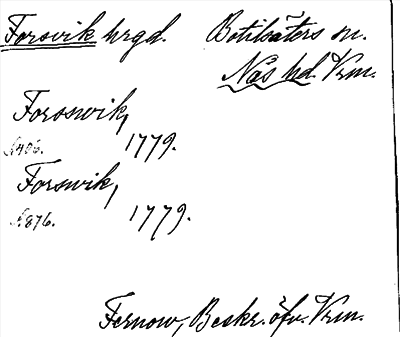 Forsvik hrgd. Botilsäters sn.
Näs hd. Vrm.
Forsswik,
S. 406. 1779.
Forswik,
S. 876. 1779.
Fernow, Beskr. öfv. Vrm.